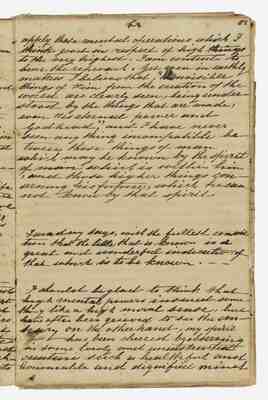 apply those mental operations which I
think good in respect of high things
to the very highest. I am content to
bear the reproach. Yet even in earthly
matters I believe that the invisible
things of Him from the creation of the
world are clearly seen, being under
stood by the things that are made,
even His eternal power and
Godhead; and I have never
seen any thing incompatible be
tween those things of man
which may be known by the spirit
of man which is within him
and those higher things con
cerning his future, which he can
not know by that spirit.
Faraday says, with the fullest convic
tion that the little that is known is a
great and wonderful indication of
that which is to be known
I should be glad to think that
high mental powers insured some
thing like a high moral sense, but
have often been grieved to see the con
trary on the other hand, my spirit
has been cheered by observing
in some lowly and uninstructed
creature such a healthful and
honourable and dignified mind